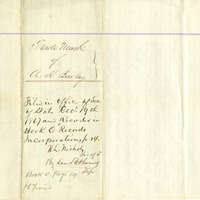 Trade Mark
of
A. H.
Filed in Office of Sec
of State Dec 19th
1867 and Recorded in
Book O. Records
Incorporations p 14.
H. L. Nichols
Sec of S
By
Dep
Book O. Page 14